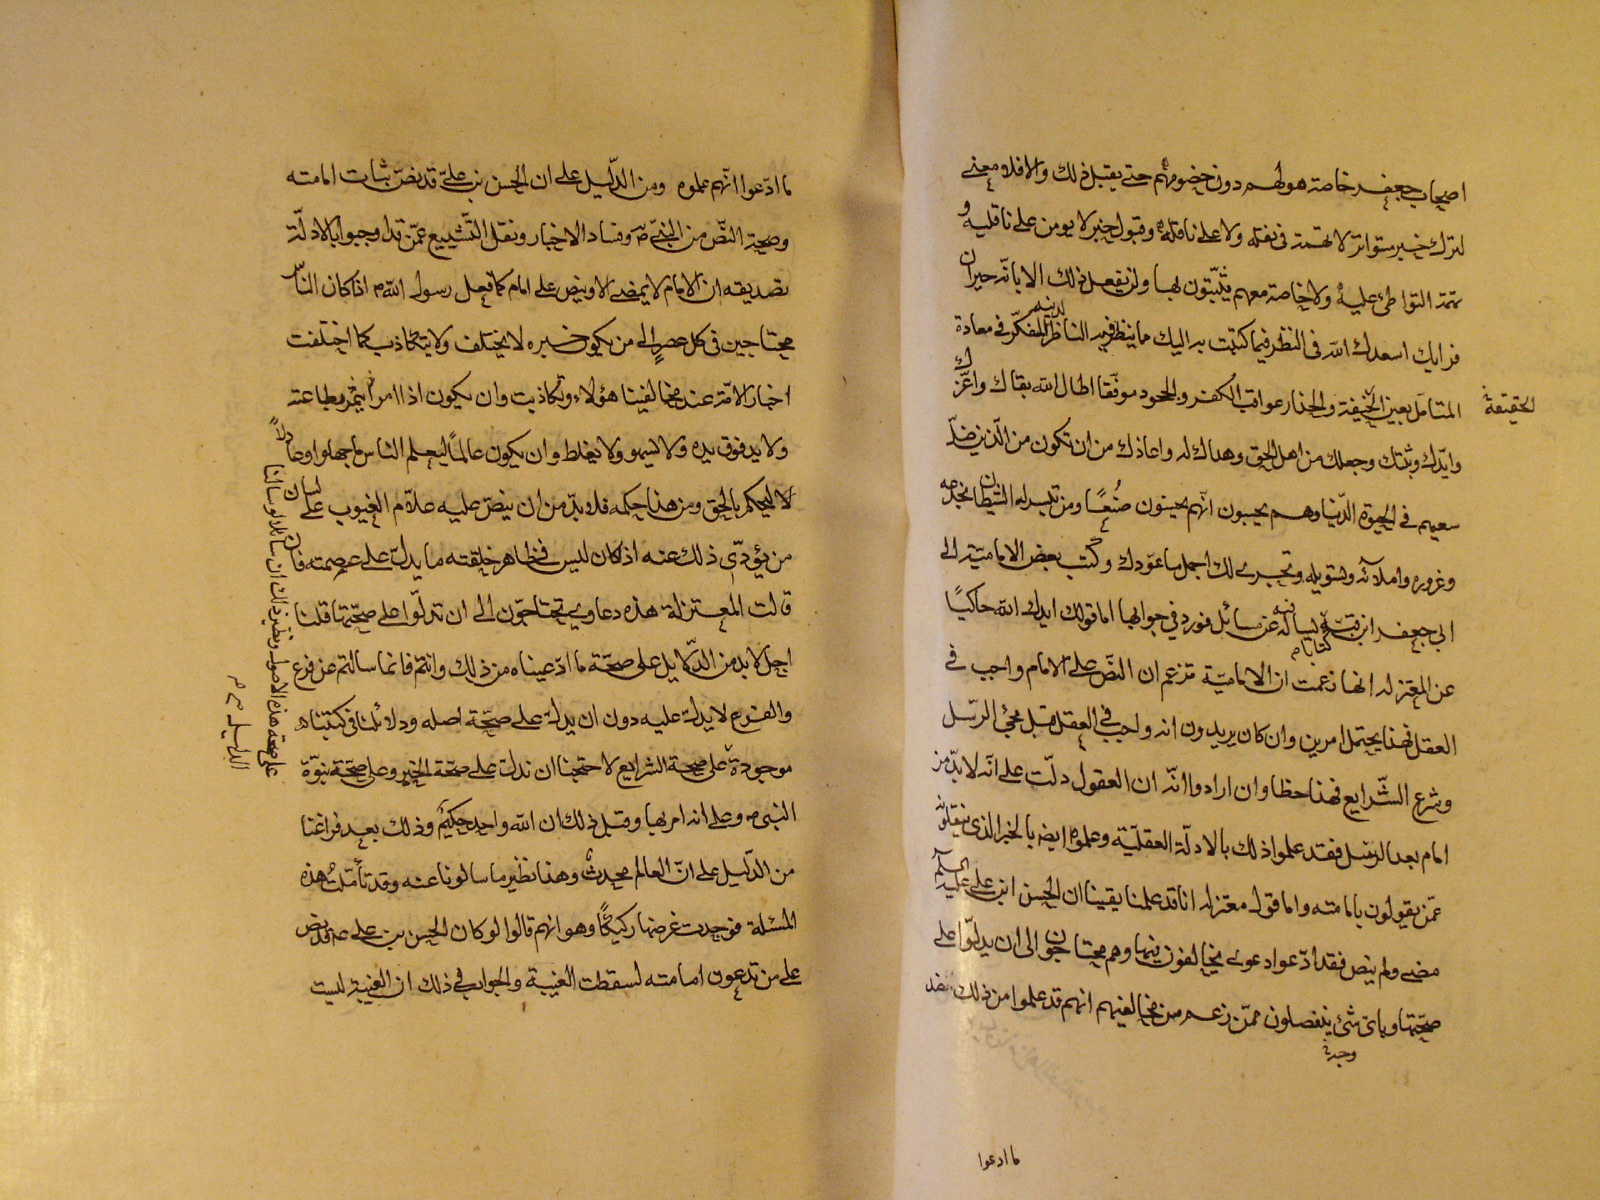 اصحاب جعفر خاصة هو لهم دون خصومهم حتى يقبل ذلك والا فلا معنى
لترك خبر متواتر لا تهمة فى نقله ولا على ناقليه وقبول خبر لا يومن على ناقليه و
تهمة التواطئ عليه ولا خاصة معهم يثبتون بها ولن يفعل ذلك الا تائه حيران
فرايك اسعدك الله فى النظر فيما كتبت به اليك مما ينظر فيه الناظر لدينه المفكر فى معاده
المتامل بعين الخيفة والحذار عواقب الكفر والجحود موفقا اطال الله بقاك واعزك
الحقيقة
وايدك وثبتك وجعلك من اهل الحق وهداك له واعاذك من ان تكون من الذين ضل
سعيهم فى الحيوة الدنيا وهم يحسبون انهم يحسنون صنعًا ومن الشيطان بخدعه
وغروره واملائه وتسويله وتجرى لك اجمل ما عودك وكتب بعض الامامية الى
ابى جعفر ابن قبة كتابا يساله فيه عن مسائل فورد فى جوابها اما قولك ايدك الله حاكيًا
عن المعتزله انها زعمت ان الامامية تزعم ان النص على الامام واجب فى
العقل فهذا يحتمل امرين وان كان يريدون انه واجب فى العقل قبل مجئ الرسل
وشرع الشرايع فهذا خطا وان ارادوا انه ان العقول دلت على انه لا بد من
امام بعد الرسل فقد علموا ذلك بالادلة العقلية وعلموه ايضا بالخبر الذى ينقلونه
عمن يقولون بامامته واما قول معتزله انا قد علمنا يقينا ان الحسن ابن على عليه السلم
مضى ولم ينص فقد ادعوا دعوى يخالفون فيها وهم محتاجون الى ان يدلوا على
صحتها وباى شئ ينفصلون ممن زعم من مخالفيهم انهم قد علموا من ذلك ضد
ما ادعوا
ما ادّعوا انّهم علموه ومن الدّليل على ان الحسن بن علىّ قد نصّ ثبات امامته
وصحة النصّ من النبىّ ص وفساد الاخبار ونقل التّشييع عمّن قد اوجبوا بالادلّة
تصديقه ان الامام لا يمضى الا وينص على امام كما فعل رسول الله ص اذا كان الناس
محتاجين فى كل عصر الى من يكون خبره لا يختلف ولا يتكاذب كما اختلفت
اخبار الامّة عند مخالفينا هؤلاء وتكاذبت وان يكون اذا امر ائتمر بطاعته
ولا يد فوق يده ولا يسهو ولا يغلط وان يكون عالمًا ليعلم الناس ما جهلوا وعادلاً
ليحكم بالحق ومن هذا حكمه فلا بدّ من ان ينصّ عليه علّام الغيوب على لسان
من يؤدّى ذلك عنه اذ كان ليس فى ظاهر خلقته ما يدل على عصمته فان
قالت المعتزلة هذه دعاوى تحتاجون الى ان تدلّوا على صحّتها قلنا
اجل لا بد من الدّلايل على صحّة ما ادّعيناه من ذلك وانتم فانما سالتم عن فرع
والفرع لا يدل عليه دون ان يدل على صحّة اصله ودلائلنا فى كتبنا
موجودة على صحة هذه الاصول ونظير ذلك ان سائلا لو سالنا
الدليل
على صحة الشرايع لاحتجنا ان ندل على صحّة الخبر وعلى صحّة نبوّة
النبى ص وعلى انه امر بها وقبل ذلك ان الله واحد حكيم وذلك بعد فراغنا
من الدّليل على انّ العالم محدث وهذا نظير ما سالونا عنه وقد تأمّلت هذه
المسئلة فوجدت غرضها ركيكًا وهو انهم قالوا لو كان الحسن بن على عه قد نص
على من تدعون امامته لسقطت الغيبة والجواب فى ذلك ان الغيبة ليست